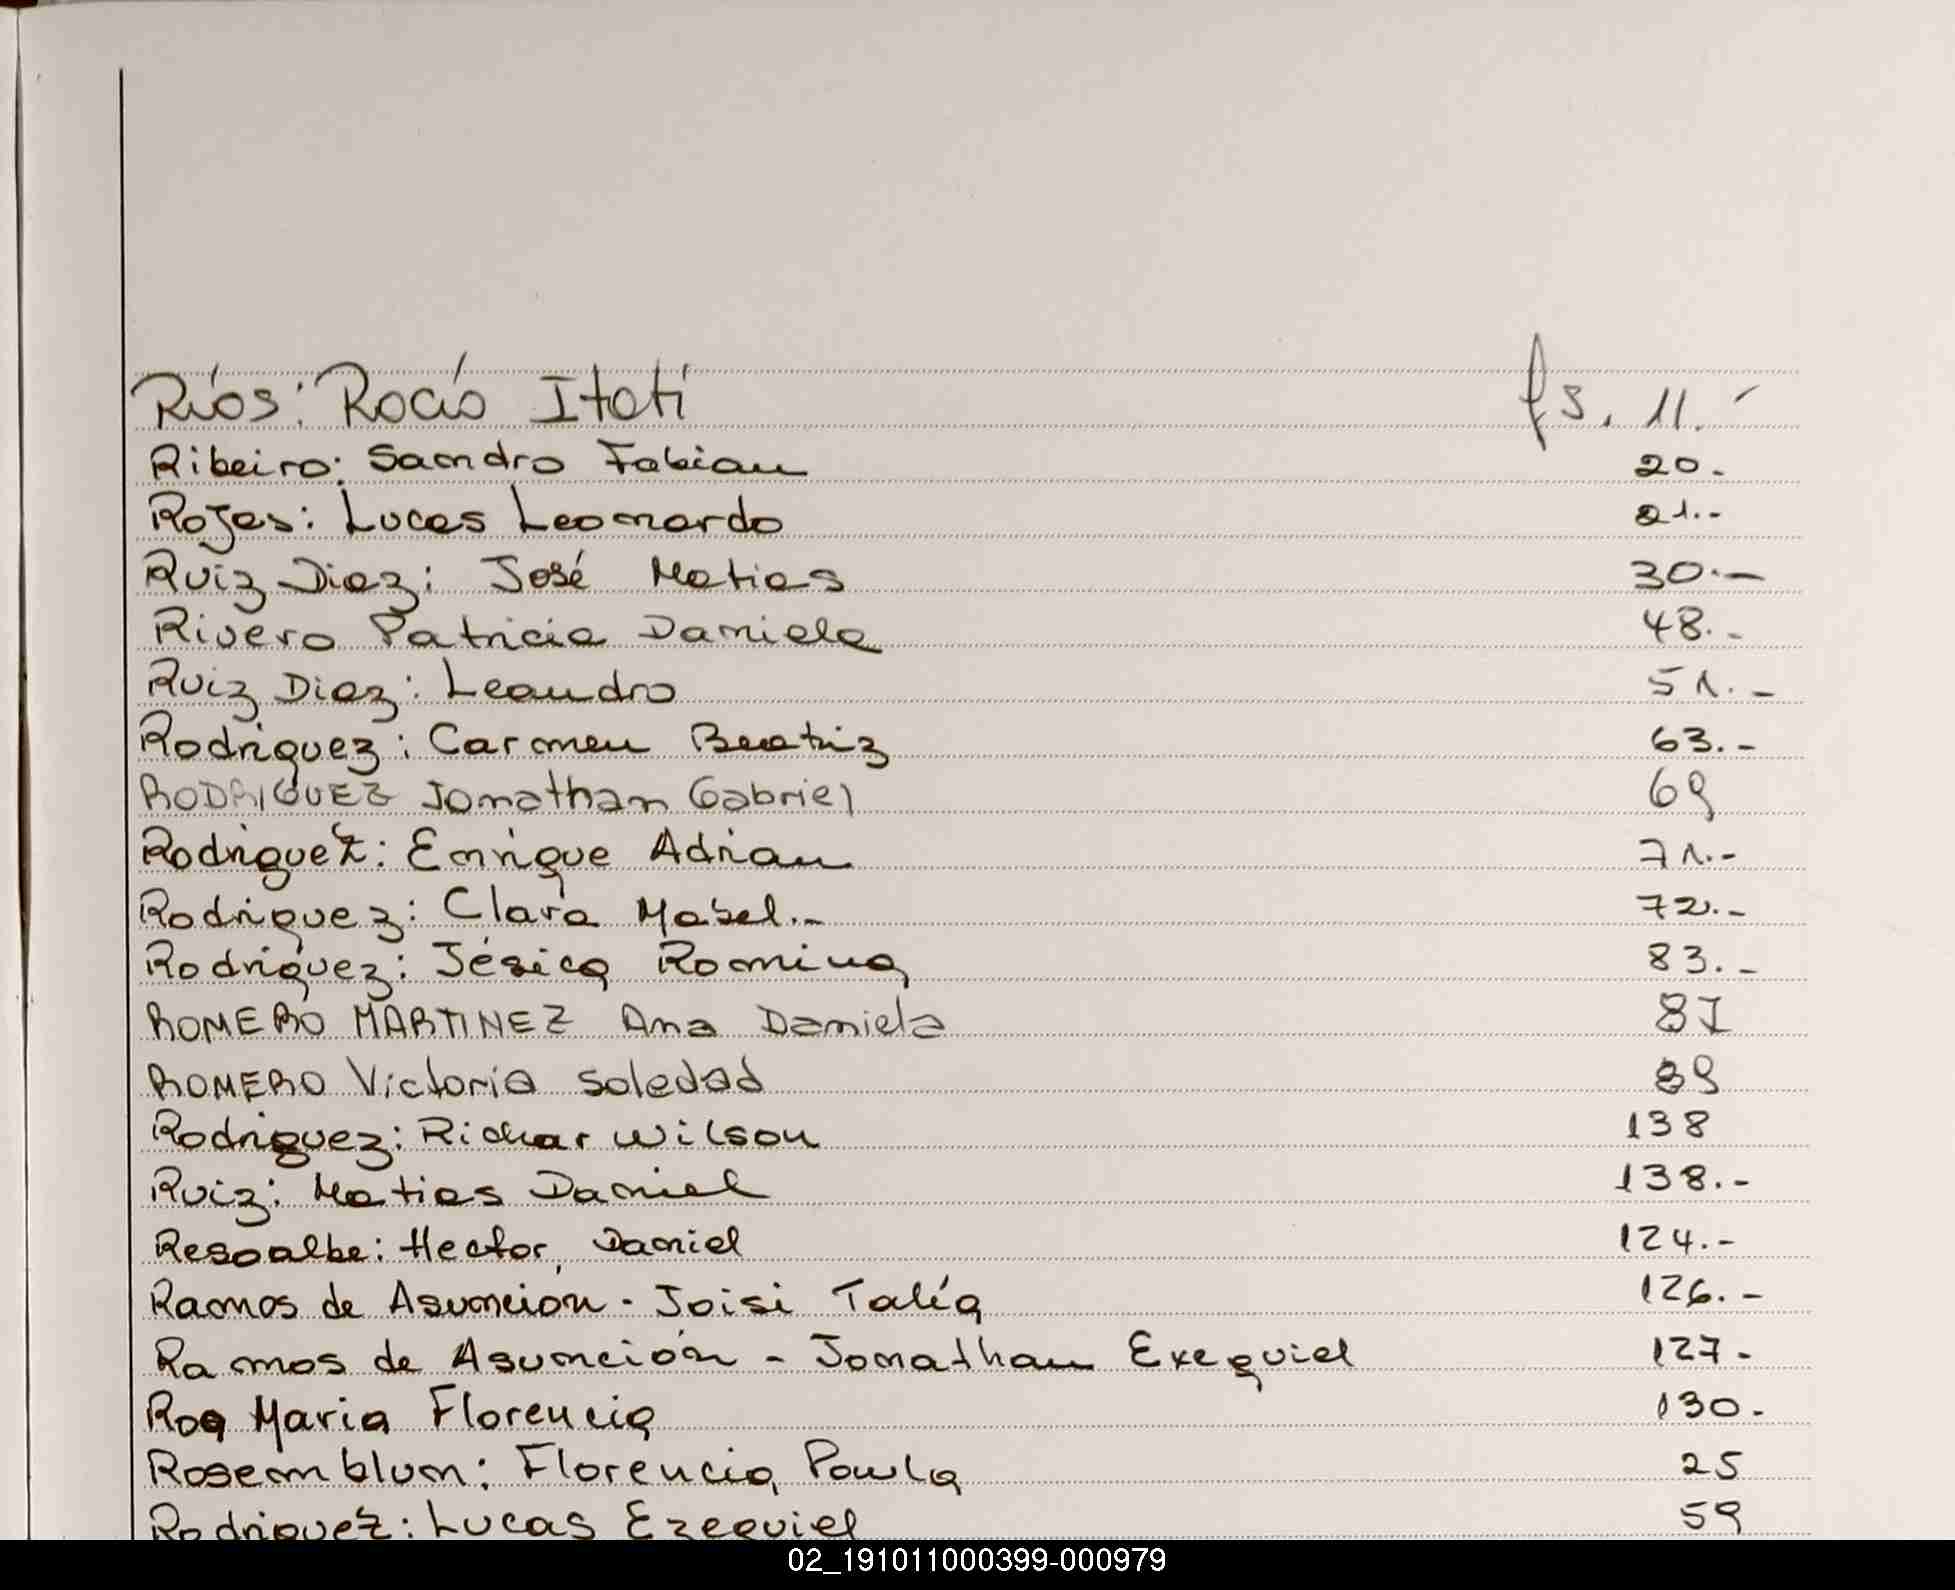 Ríos: Rocío Itatí fs. 11.-
Ribeiro: Sandro Fabian 20.-
Rojas: Lucas Leonardo 21.-
Ruiz Diaz: José Matias 30.-
Rivero Patricia Daniela 48.-
Ruiz Diaz: Leandro 51.-
Rodriguez: Carmen Beatriz 63.-
RODRIGUEZ Jonathan Gabriel 69
Rodriguez: Enrique Adrian 71.-
Rodriguez: Clara Mabel.- 72.-
Rodriguez: Jésica Romina 83.-
ROMERO MARTINEZ Ana Daniela 87
ROMERO Victoria Soledad 89
Rodriguez: Richar Wilson 138
Ruiz: Matias Daniel 138.-
Resoalbe: Hector, Daniel 124.-
Ramos de Asunción - Joisi Talía 126.-
Ramos de Asunción - Jonathan Exequiel 127-
Roa Maria Florencia 130-
Rosemblum: Florencia Paula 25
Rodriguez: Lucas Ezequiel 59
02_191011000399-000979